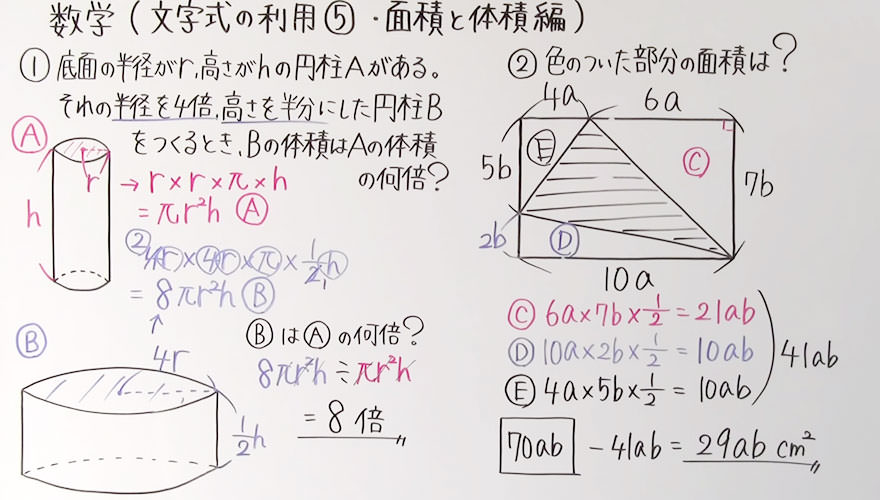 数学(文字式の利用⑤・面積と体積編)
① 底面の半径がr,高さがhの円柱Aがある。
それの半径を4倍,高さを半分にした円柱B
をつくるとき、Bの体積はAの体積
の何倍?
Ⓐ
r
h
→ r×r×π×h
= πr²h Ⓐ
② 4r×4r×π×1/2h
= 8πr²h Ⓑ
↑
Ⓑ
4r
1/2h
ⒷはⒶの何倍?
8πr²h÷πr²h
= 8倍
② 色のついた部分の面積は?
4a 6a
Ⓔ
5b
Ⓒ
7b
2b
Ⓓ
10a
Ⓒ 6a×7b×1/2=21ab
Ⓓ 10a×2b×1/2=10ab
Ⓔ 4a×5b×1/2=10ab
41ab
70ab -41ab=29ab cm²